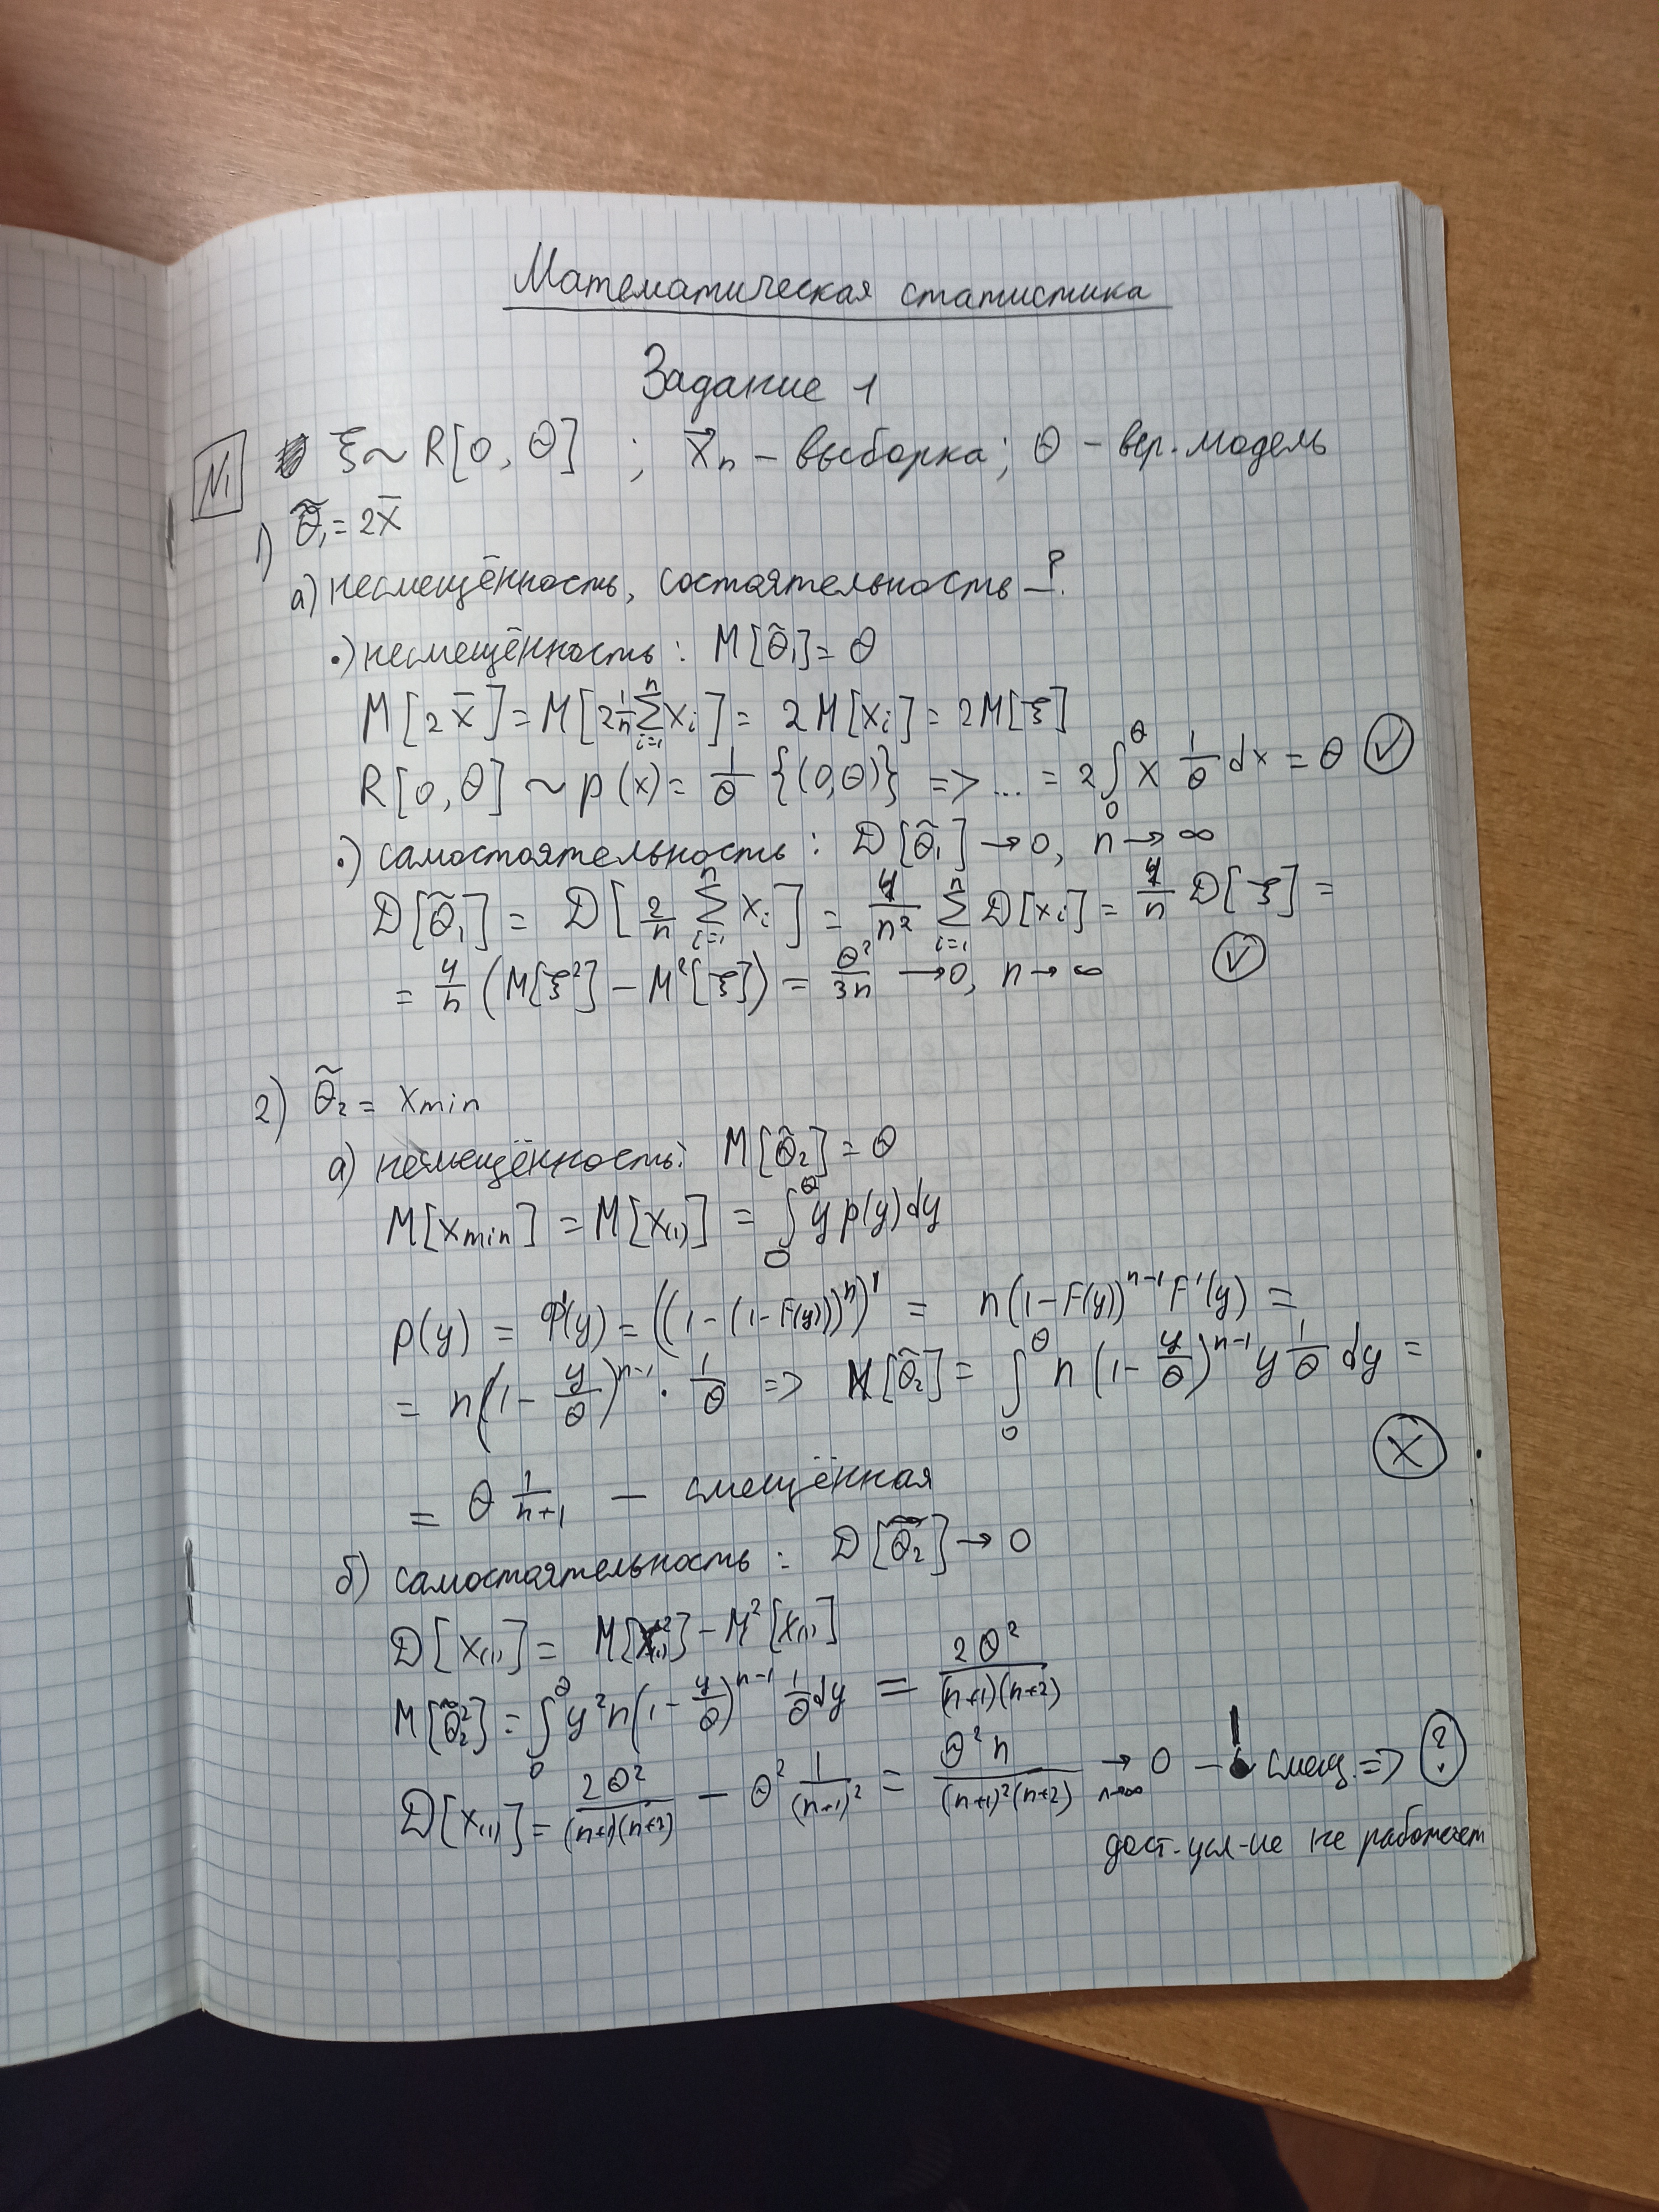 Математическая статистика
Задание 1
N1 ξ ~ R[0, θ] ; x⃗n – выборка; θ – вер. модель
1) θ̃₁ = 2x̄
а) несмещённость, состоятельность – ?
•) несмещённость: M[θ̃₁] = θ
M[2x̄] = M[2 1/n Σ_{i=1}^{n} xᵢ] = 2M[xᵢ] = 2M[ξ]
R[0, θ] ~ p(x) = 1/θ {(0,θ)} => ... = 2∫₀^θ x 1/θ dx = θ ✓
•) самостоятельность: D[θ̃₁] → 0, n → ∞
D[θ̃₁] = D[2/n Σ_{i=1}^{n} xᵢ] = 4/n² Σ_{i=1}^{n} D[xᵢ] = 4/n D[ξ] =
= 4/n (M[ξ²] – M²[ξ]) = θ²/3n → 0, n → ∞ ✓
2) θ̃₂ = xmin
а) несмещённость: M[θ̃₂] = θ
M[xmin] = M[x₍₁₎] = ∫₀^θ y p(y)dy
p(y) = φ'(y) = ((1 – (1 – F(y)))ⁿ)' = n(1 – F(y))^{n-1} F'(y) =
= n(1 – y/θ)^{n-1} · 1/θ => M[θ̃₂] = ∫₀^θ n(1 – y/θ)^{n-1} y 1/θ dy =
= θ 1/(n+1) – смещённая X
б) самостоятельность: D[θ̃₂] → 0
D[x₍₁₎] = M[x₍₁₎²] – M²[x₍₁₎]
M[θ̃₂²] = ∫₀^θ y² n(1 – y/θ)^{n-1} 1/θ dy = 2θ²/((n+1)(n+2))
D[x₍₁₎] = 2θ²/((n+1)(n+2)) – θ² 1/(n+1)² = θ²n/((n+1)²(n+2)) →_{n→∞} 0 – ! смещ. => ?
дост. усл-ие не работает